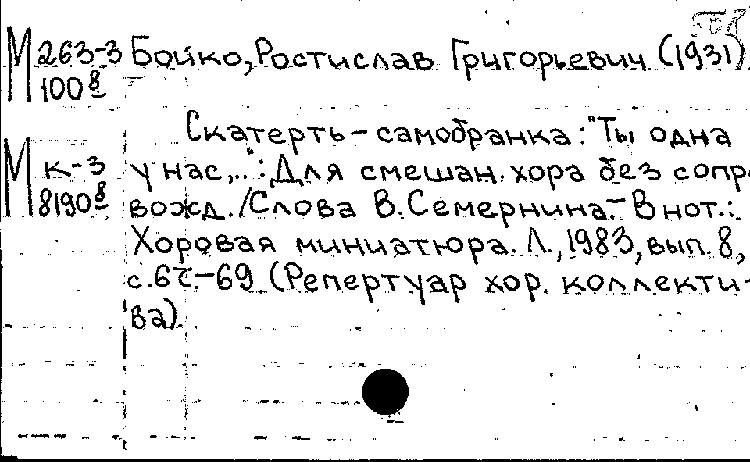 М 263-3 Бойко, Ростислав Григорьевич (1931)
100 8
Скатерть-самобранка: "Ты одна
М к-3 у нас,..": Для смешан. хора без сопро
8190 8 вожд. /Слова В. Семернина.- В нот.:
Хоровая миниатюра. Л., 1983, вып. 8,
(Репертуар хор. коллекти-
ва)